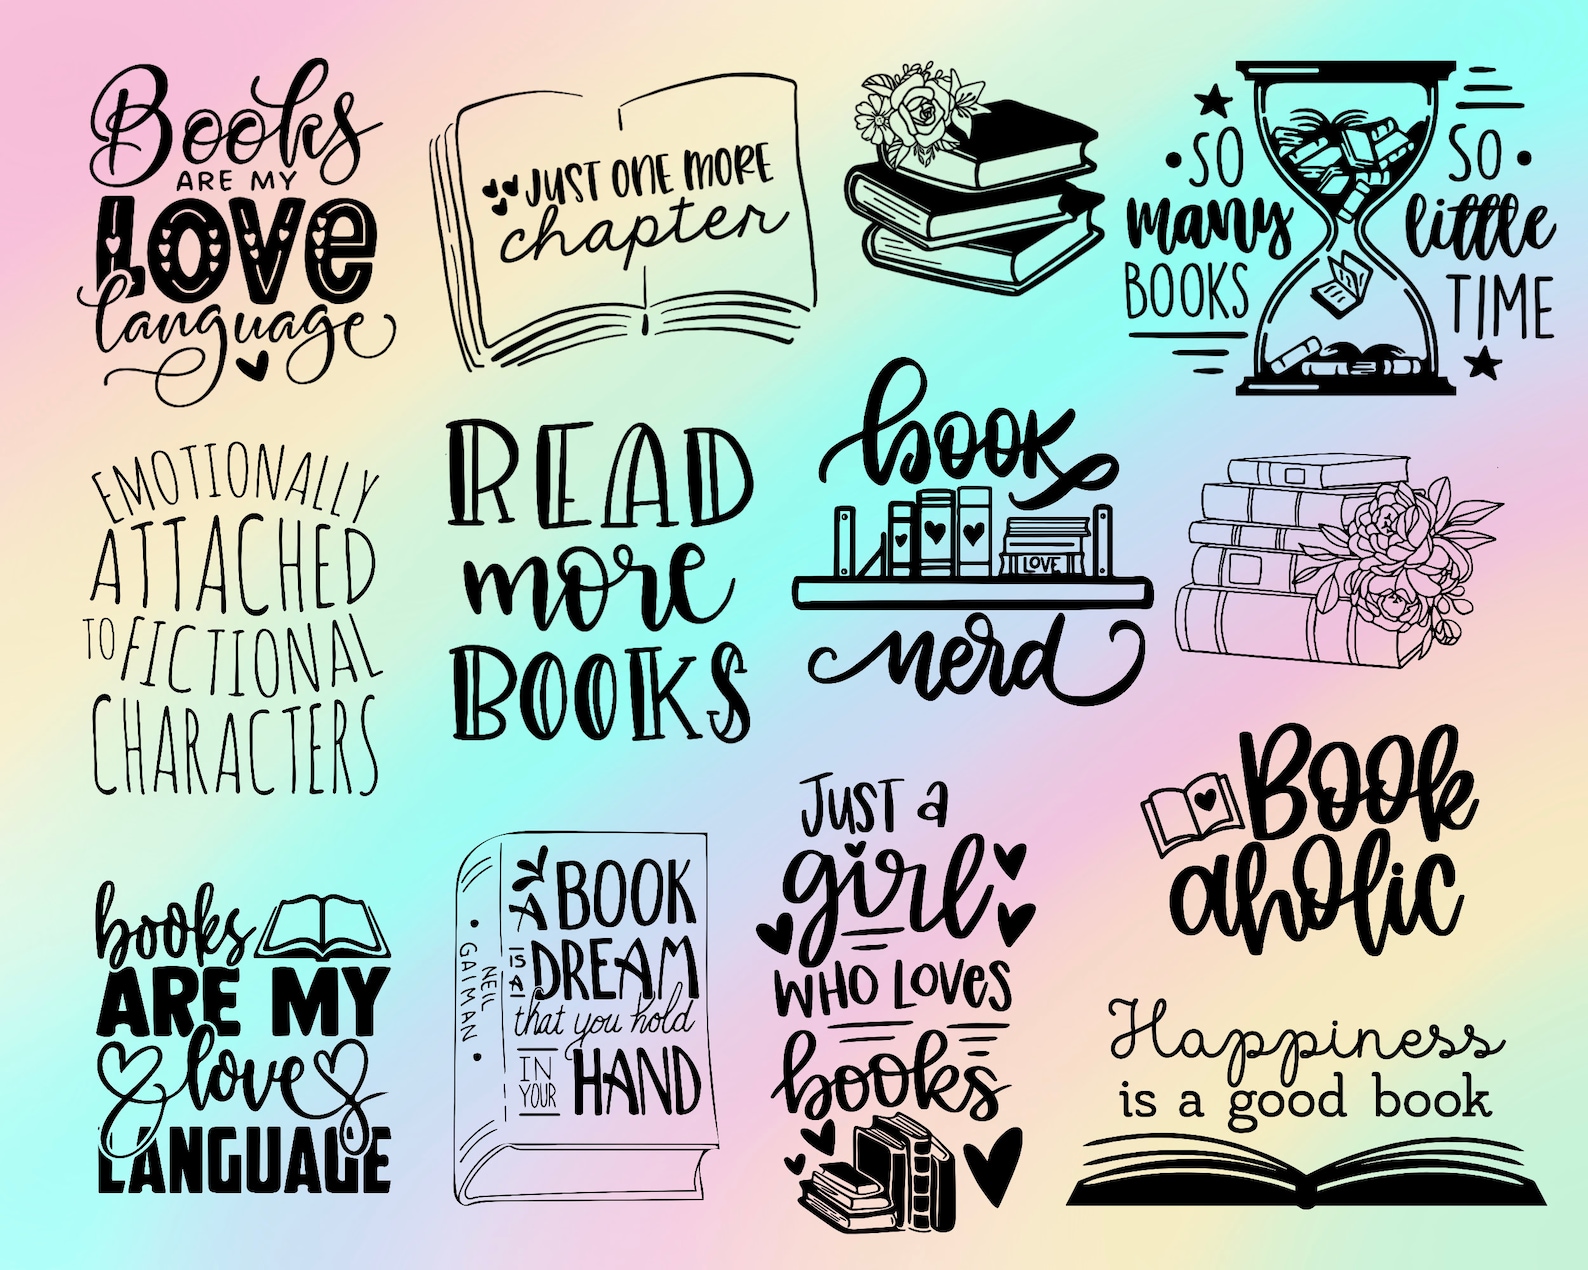 Books
ARE MY
LOVE
language
JUST ONE MORE
chapter
SO
many
BOOKS
SO
little
TIME
EMOTIONALLY
ATTACHED
TO FICTIONAL
CHARACTERS
READ
more
BOOKS
book
LOVE
nerd
books
ARE MY
love
LANGUAGE
NEIL
GAIMAN
A BOOK
IS A DREAM
that you hold
IN YOUR HAND
JUST a
girl
WHO LOVES
books
Book
aholic
Happiness
is a good book